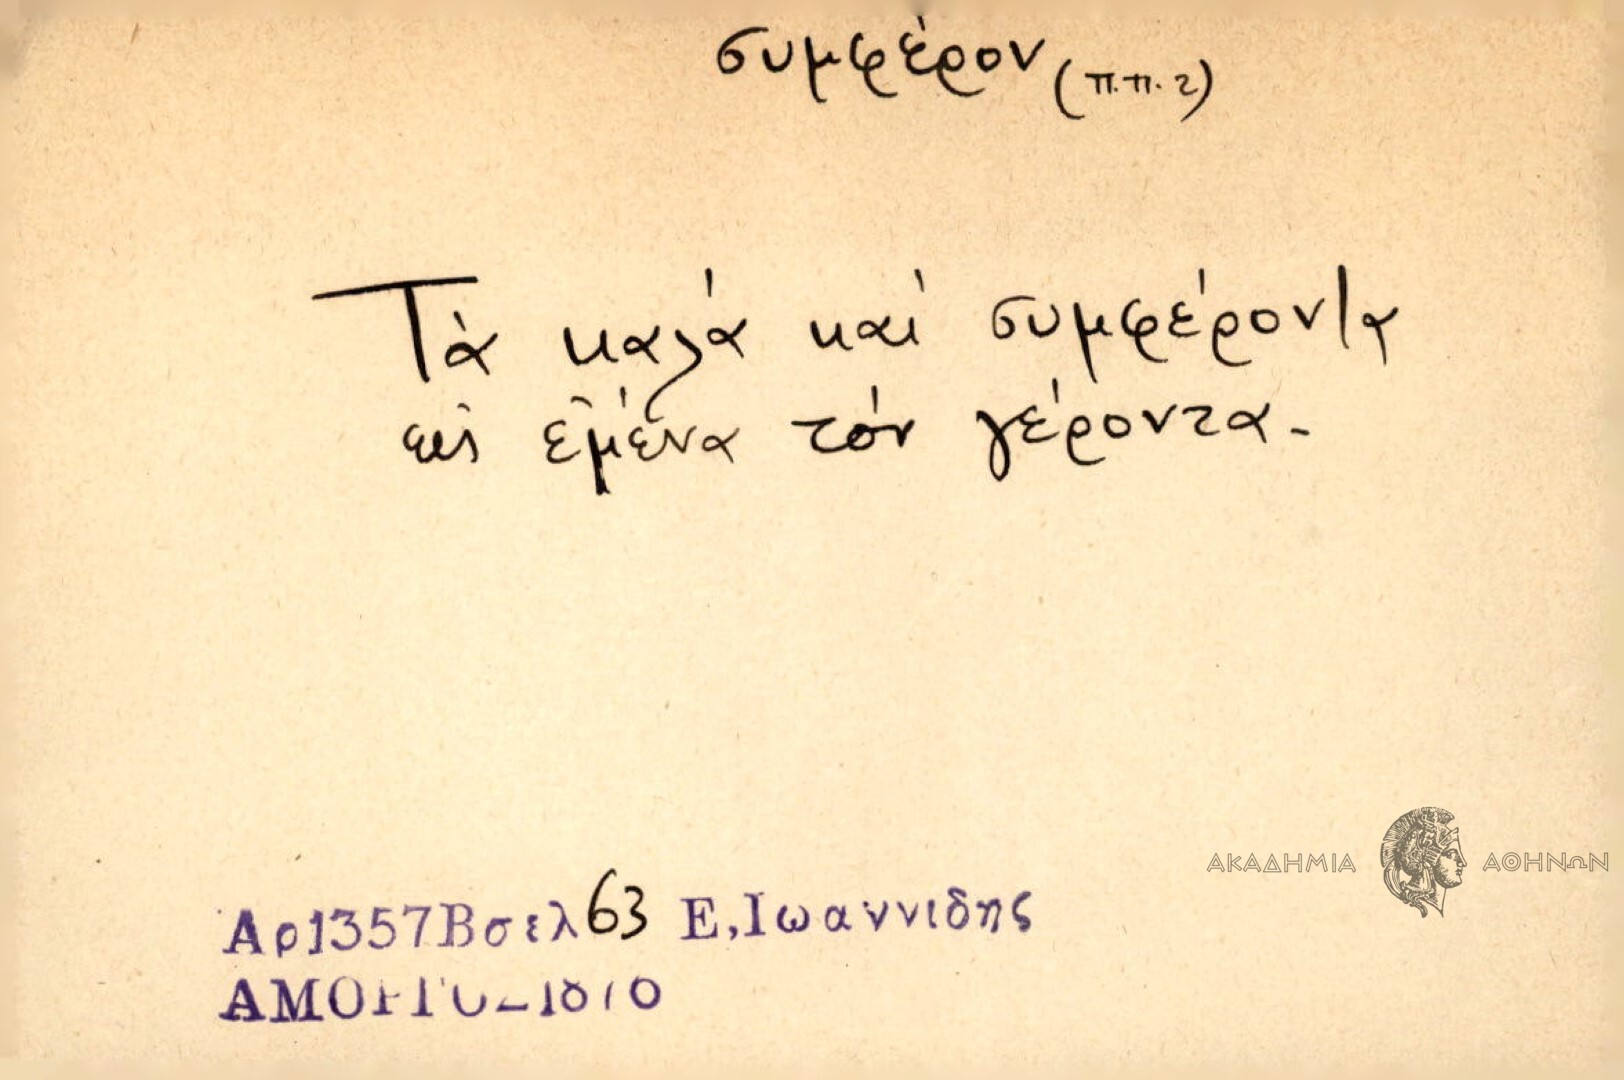 συμφέρον (π.π. 2)
Τὰ καλά καί συμφέροντα
εἰς ἐμένα τόν γέροντα.
ΑΚΑΔΗΜΙΑ ΑΘΗΝΩΝ
Αρ1357Βσελ63 Ε,Ιωαννιδης
ΑΜΟΡΓΟΣ1876